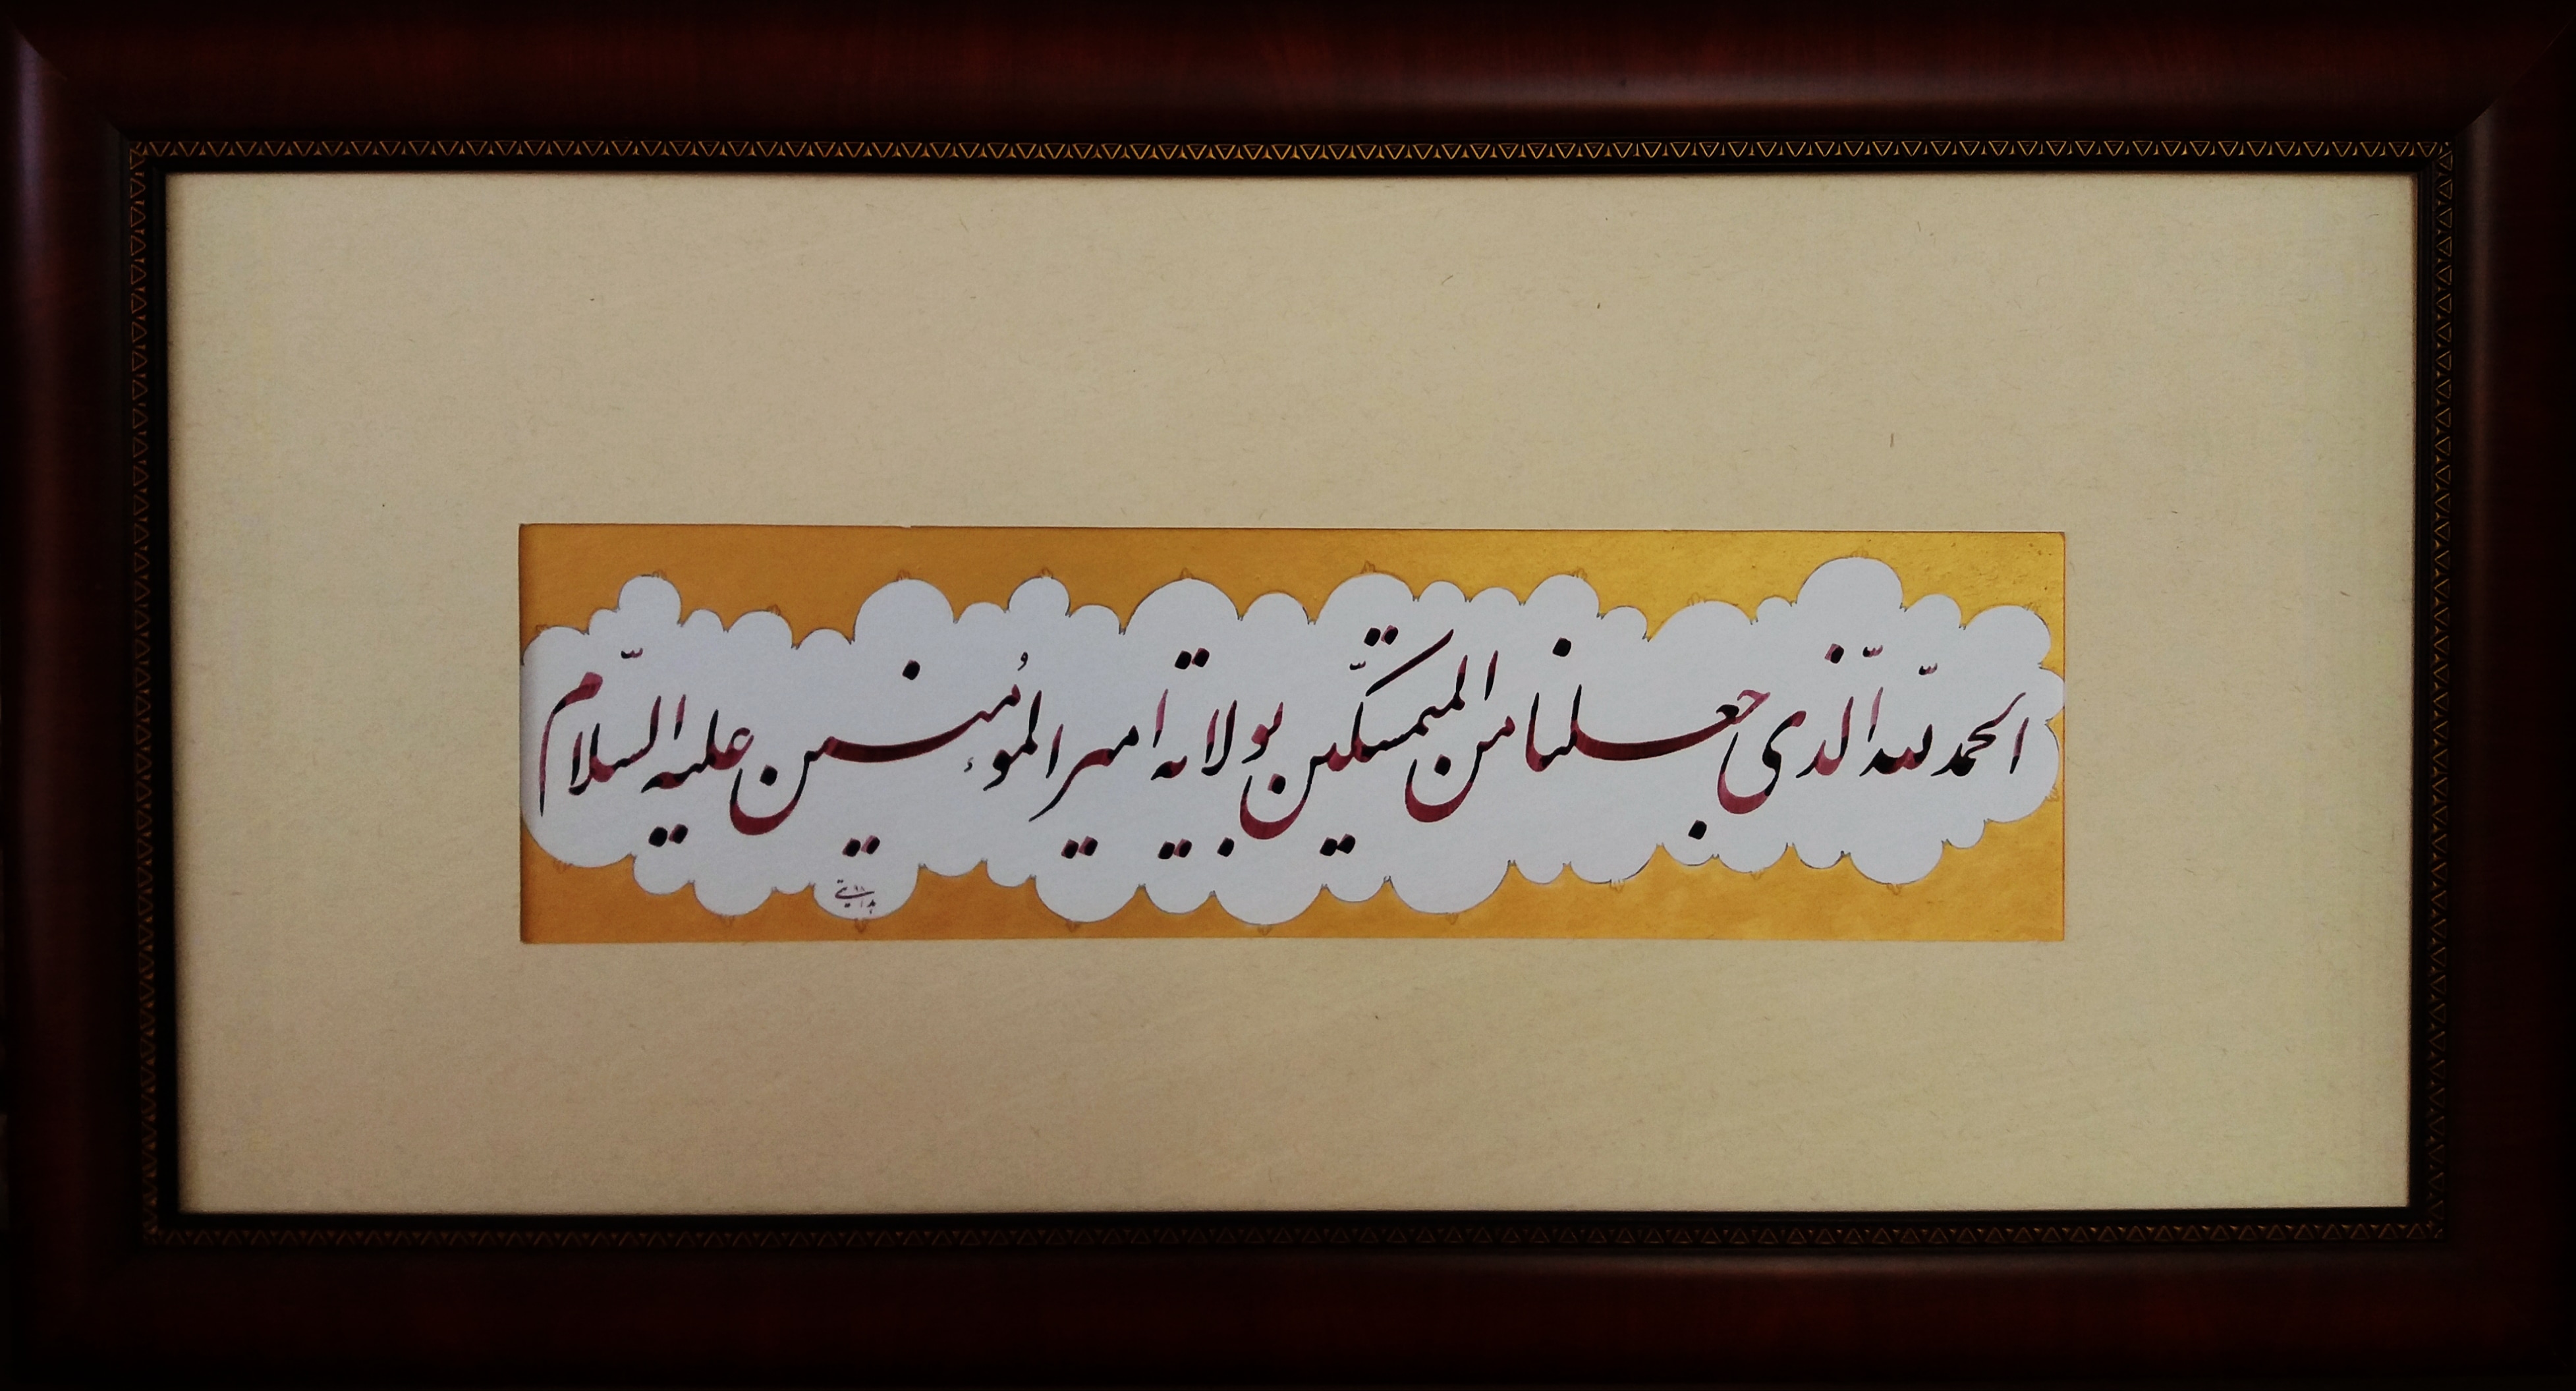 الحمد لله الّذی جعلنا من المتمسّکین بولایة امیر المؤُمنین علیه السّلام